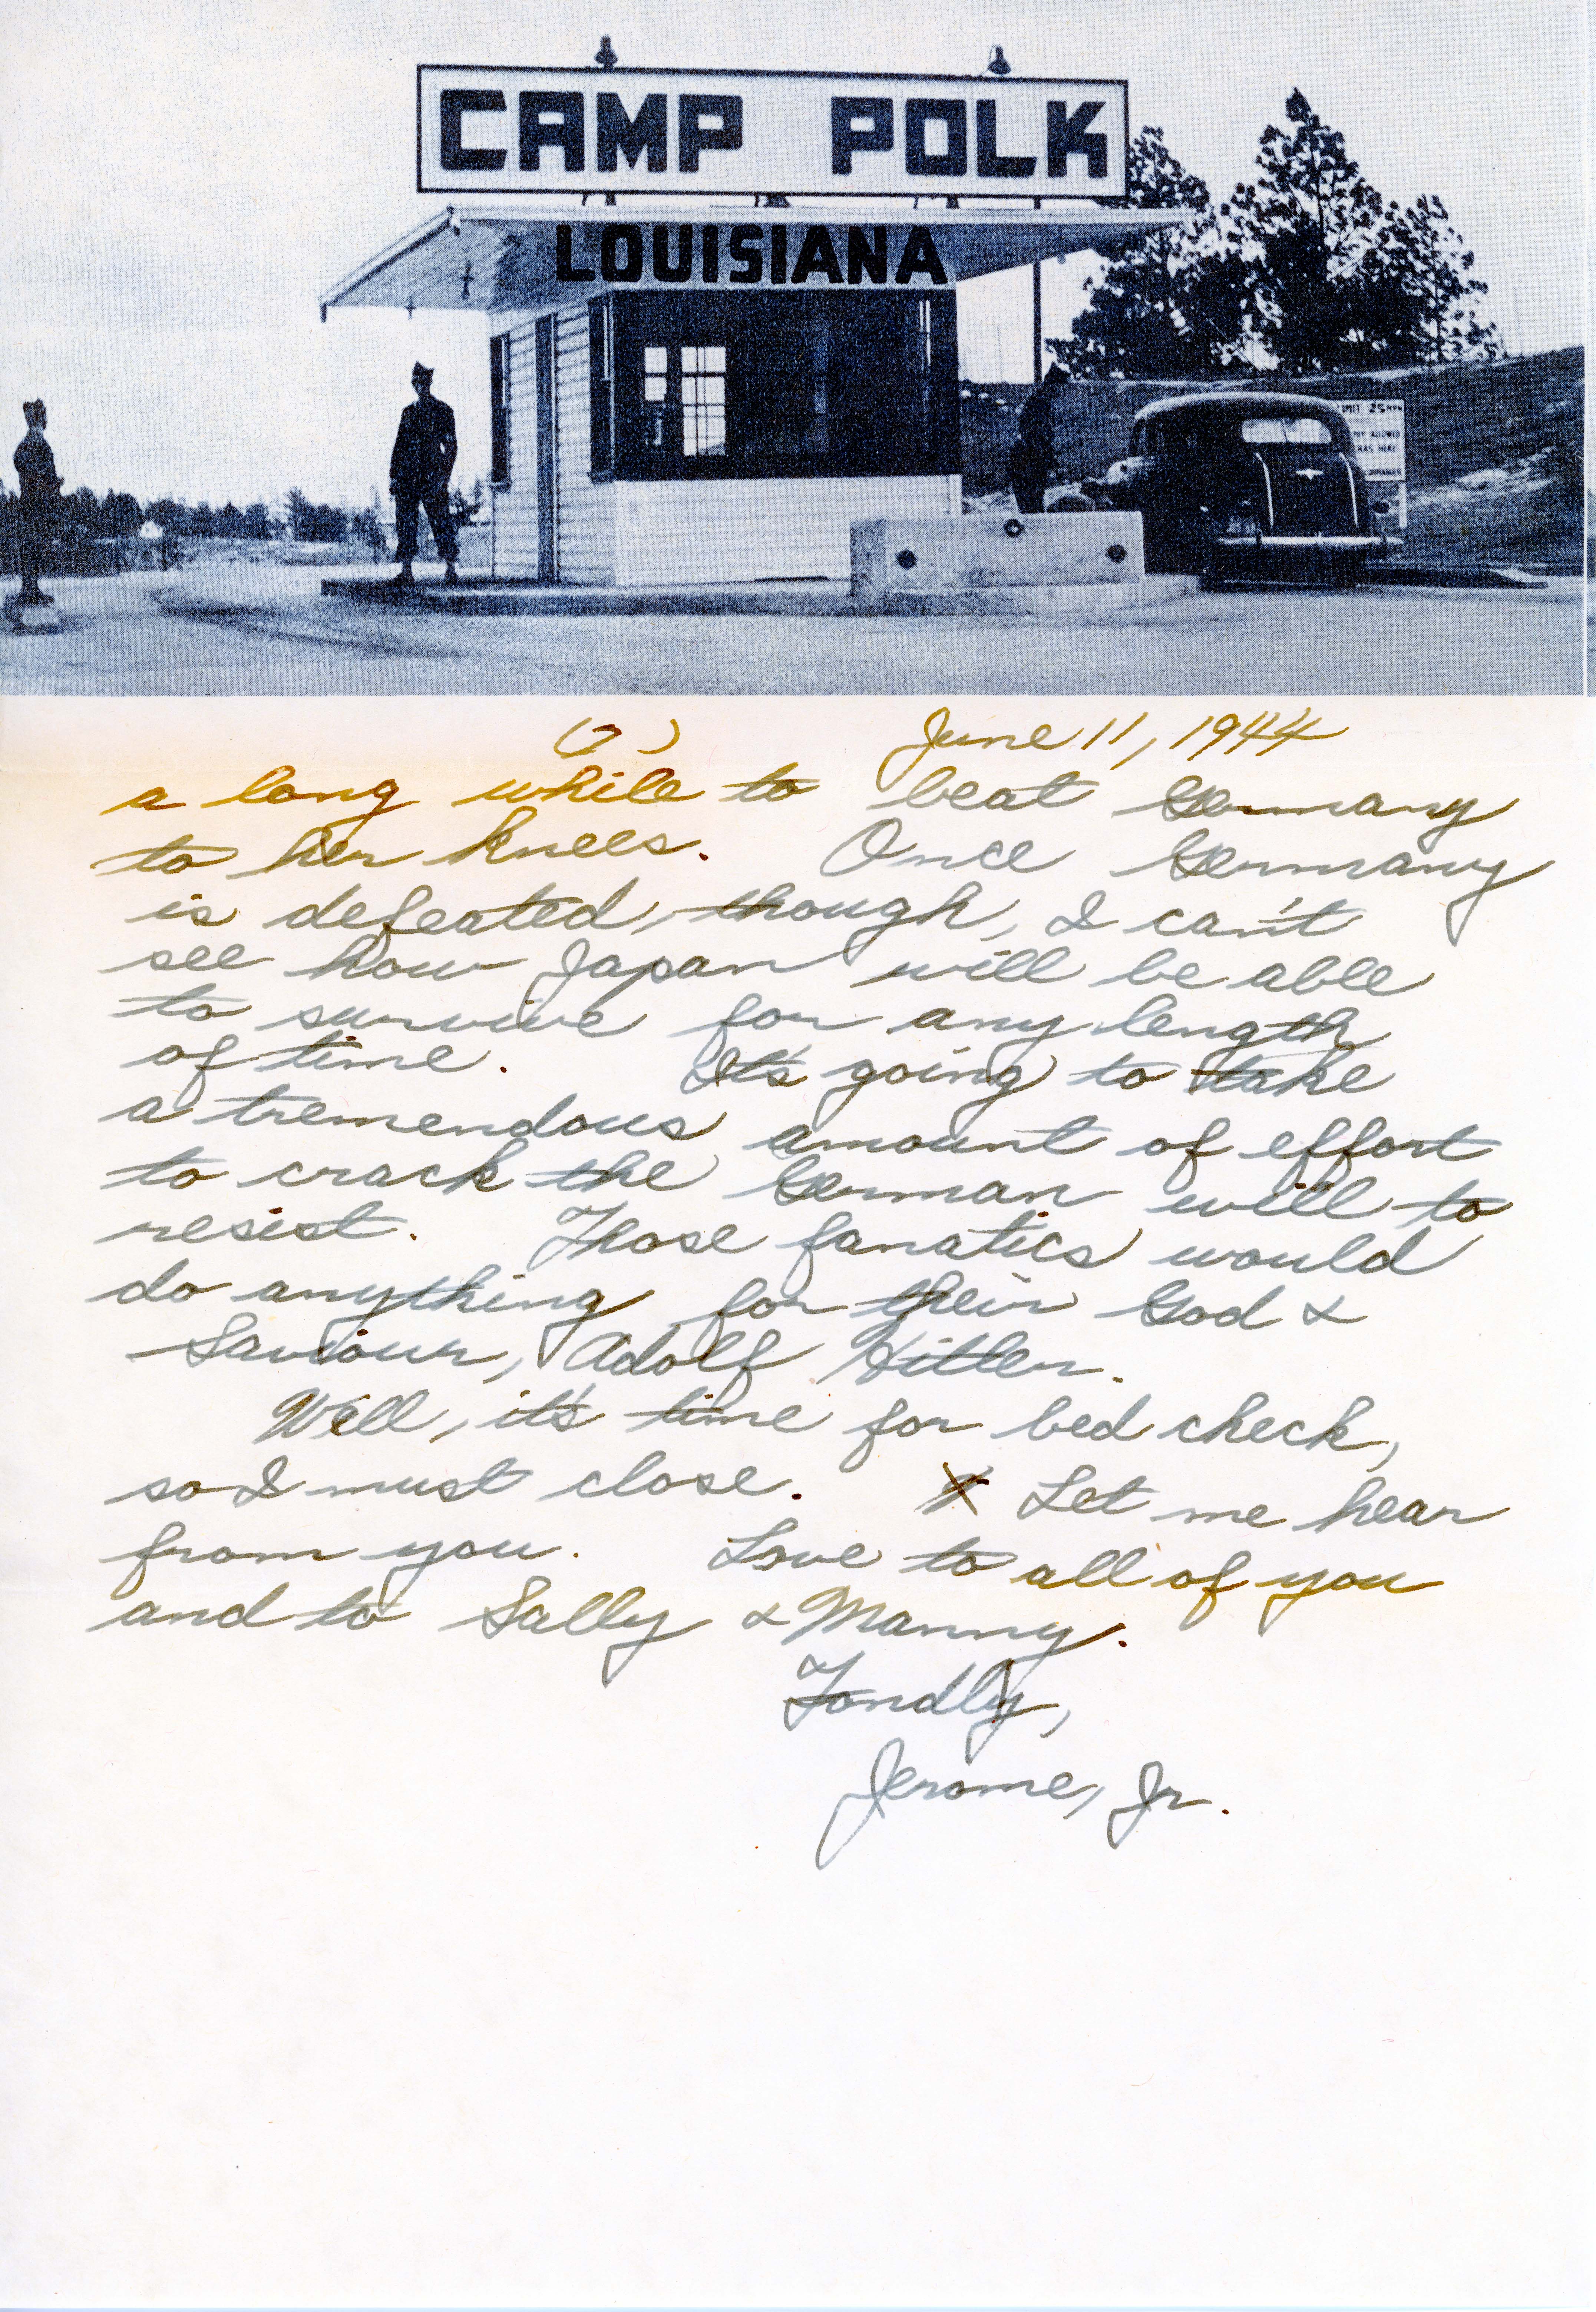 CAMP POLK
LOUISIANA
LIMIT 25 MPH
ALLOWED
HERE
(2) June 11, 1944
a long while to beat Germany
to her knees. Once Germany
is defeated, though, I can't
see how Japan will be able
to survive for any length
of time. It's going to take
a tremendous amount of effort
to crack the German will to
resist. Those fanatics would
do anything for their God &
Saviour, Adolf Hitler.
Well, it's time for bed check,
so I must close. Let me hear
from you. Love to all of you
and to Sally & Manny.
Fondly,
Jerome, Jr.